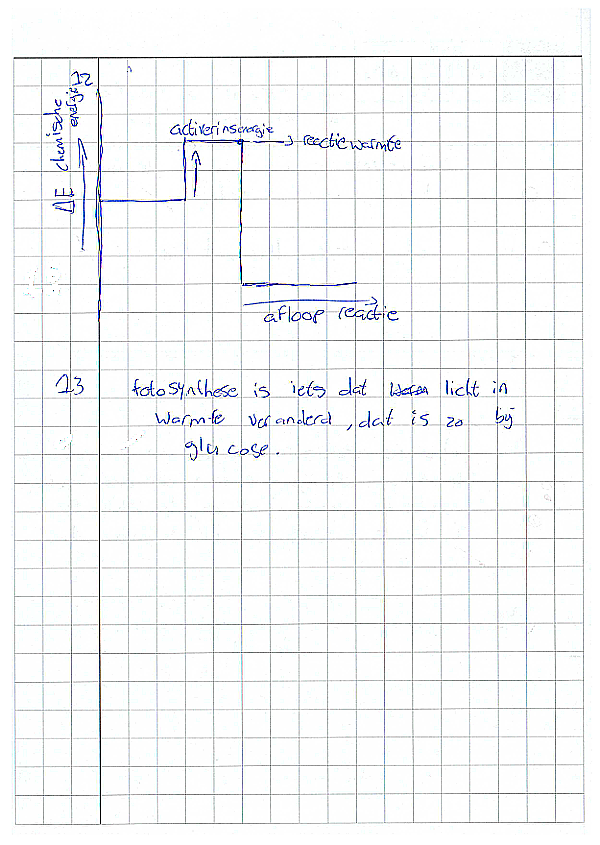 12
ΔE chemische
energie
activerinsenergie
→ reactiewarmte
afloop reactie
13 fotosynthese is iets dat licht in
warmte veranderd, dat is zo bij
glucose.